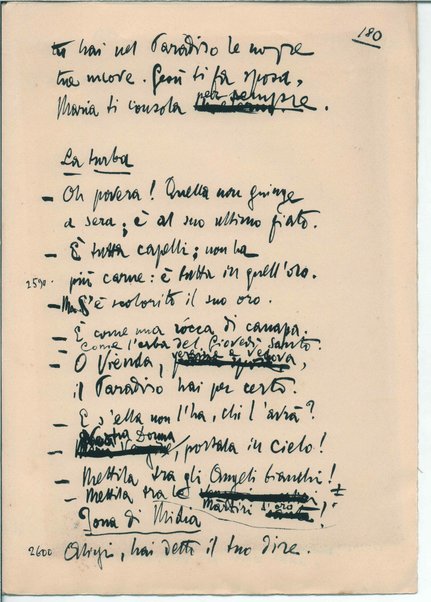 180
tu hai nel Paradiso le nozze
tue nuove. Gesù ti fa sposa,
Maria ti consola per sempre.
La turba
– Oh povera! Quella non giunge
a sera; è al suo ultimo fiato.
– È tutta capelli; non ha
2590. più carne: è tutta in quell'oro.
– Ma s'è scolorito il suo oro.
– È come una ròcca di canapa.
– Come l'erba del Giovedì santo.
– O Vienda, vergine e vedova,
il Paradiso hai per certo.
– E s'ella non l'ha, chi l'avrà?
– Nostra Donna, portala in cielo!
– Mettila tra gli Angeli bianchi!
– Mettila tra le
Martiri d'oro!
Iona di Midia
2600 Aligi, hai detto il tuo dire.